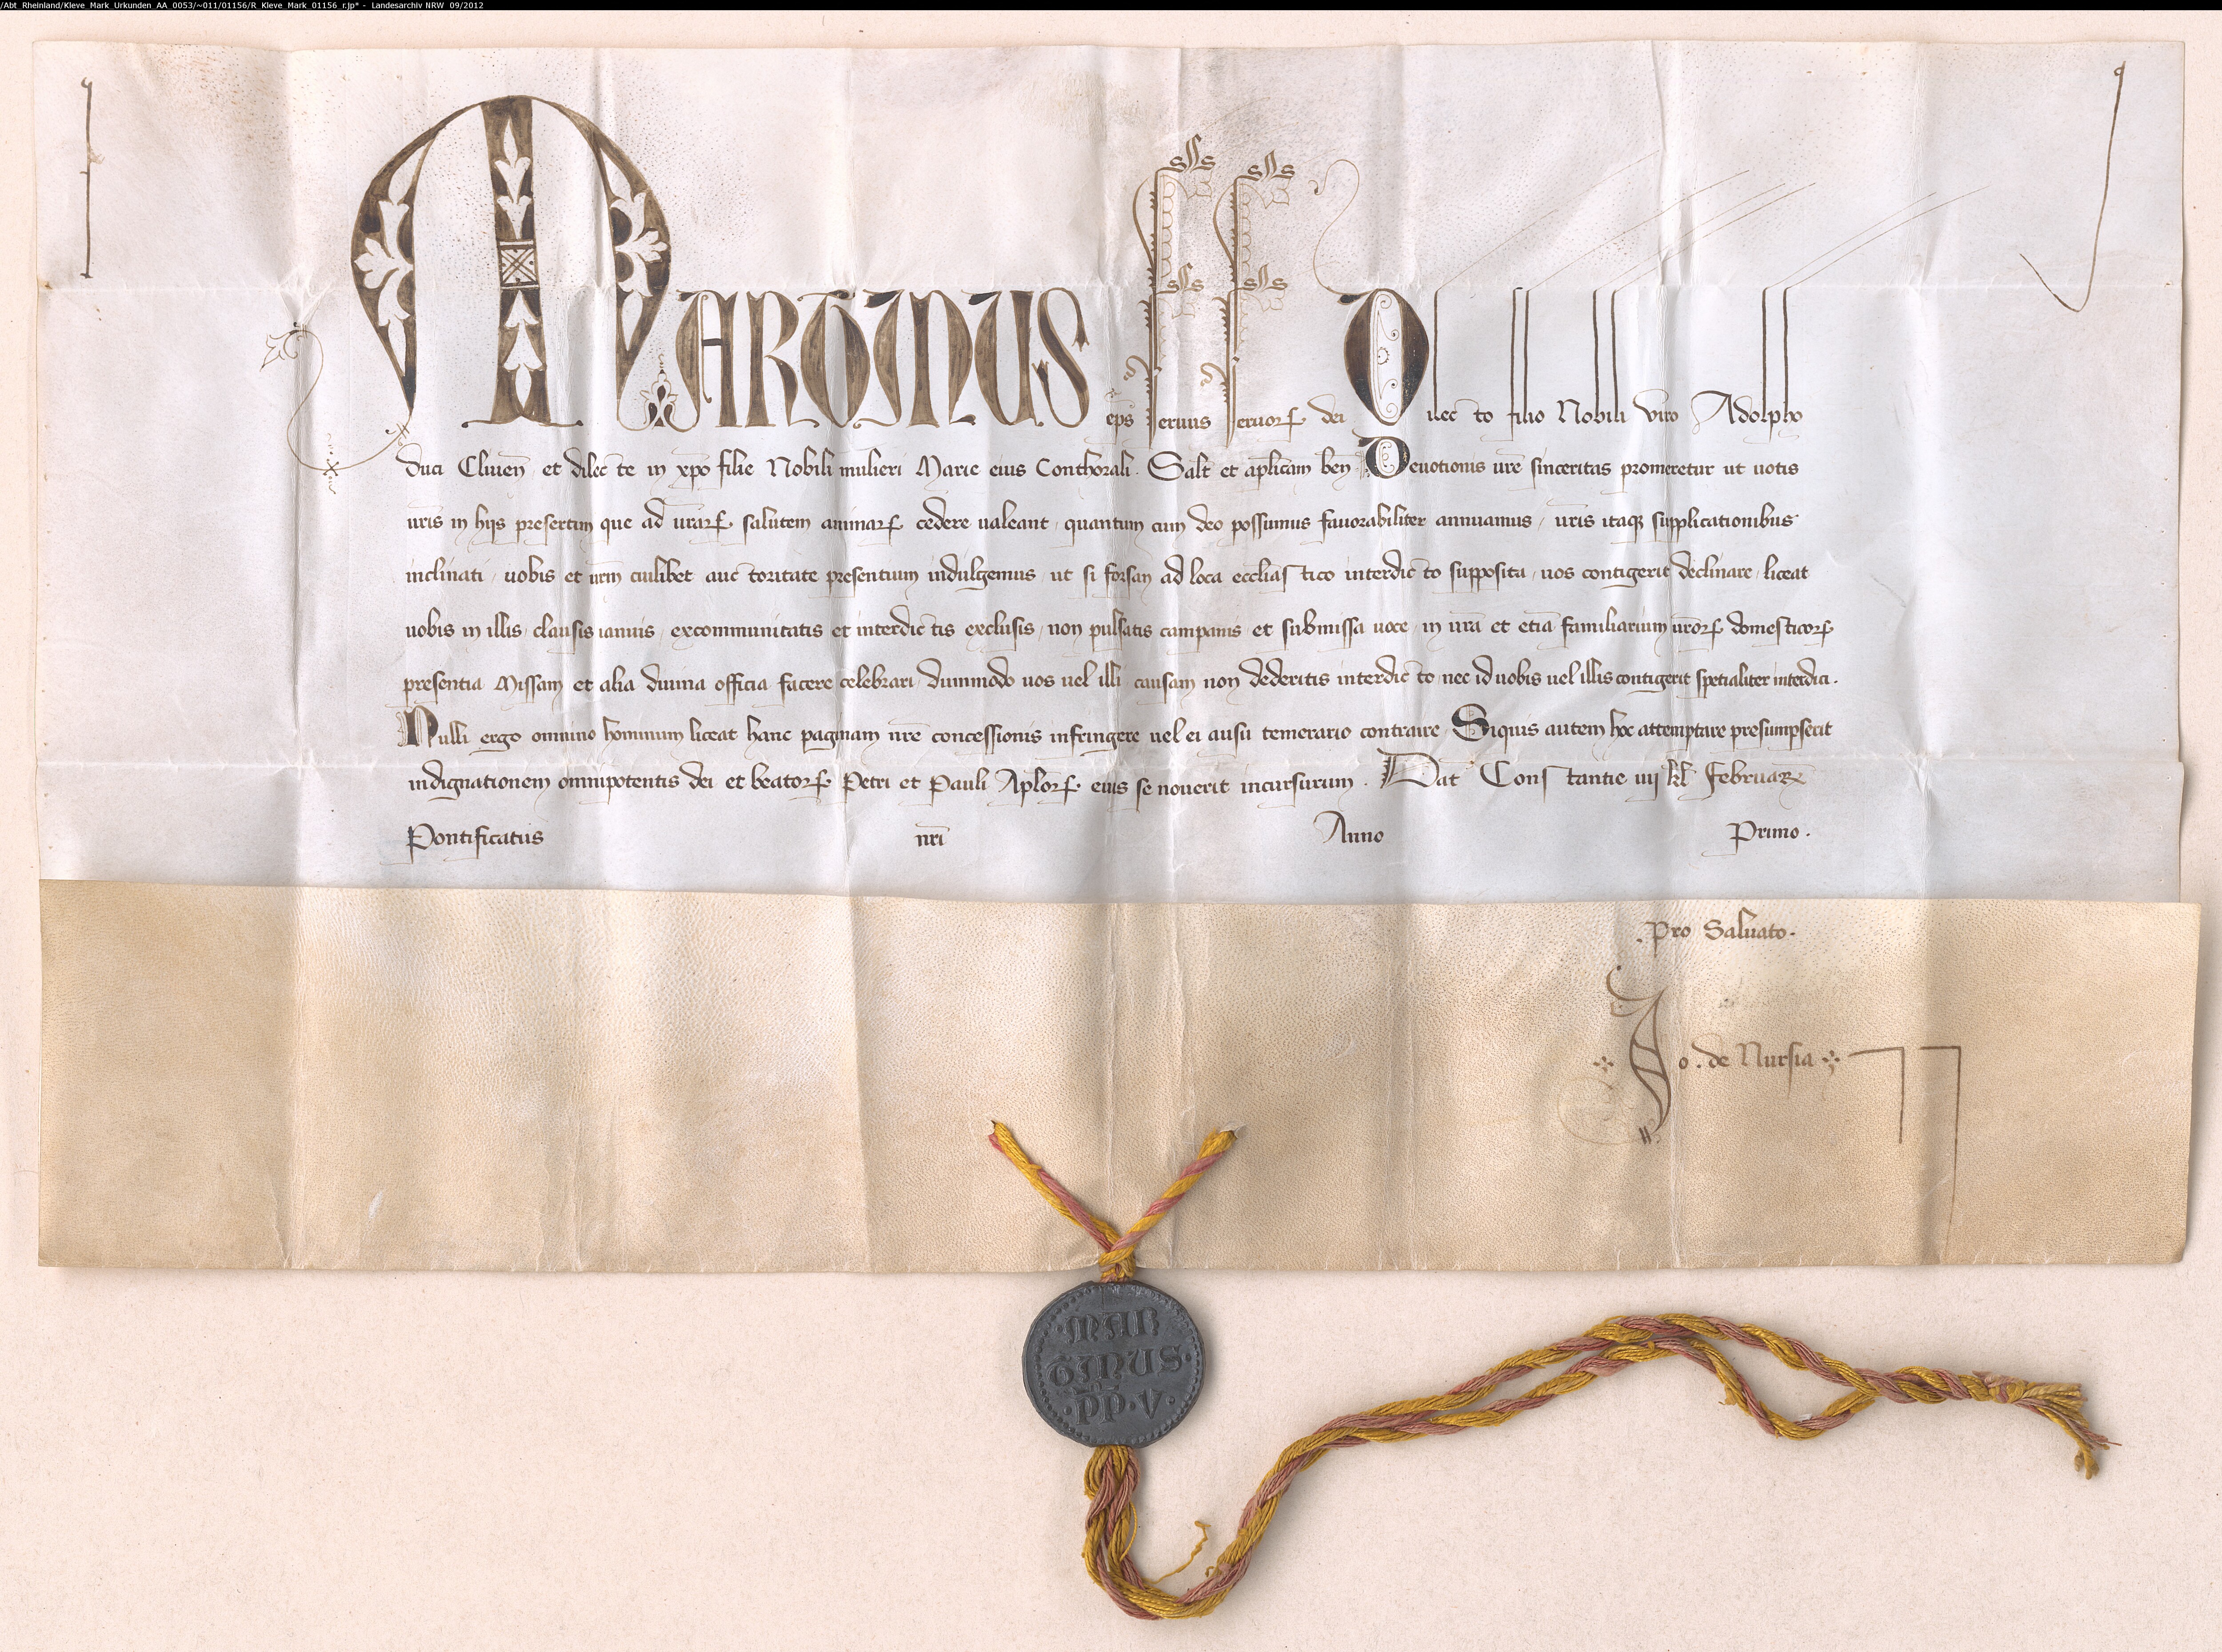 /Abt_Rheinland/Kleve_Mark_Urkunden_AA_0053/~011/01156/R_Kleve_Mark_01156_r.jp* - Landesarchiv NRW 09/2012
MARTINUS ep̄s seruus seruoꝝ dei Dilecto filio Nobili viro Adolpho
duci Cliuen̄ et dilecte in xp̄o filie Nobili mulieri Marie eius Conthorali. Salt̄ et ap̄licam ben̄ Deuotionis ur̄e sinceritas promeretur ut uotis
ur̄is in hijs presertim que ad ur̄arꝝ salutem animarꝝ cedere ualeant, quantum cum deo possumus fauorabiliter annuamus, ur̄is itaqꝫ supplicationibus
inclinati, uobis et ur̄m cuilibet auctoritate presentium indulgemus, ut si forsan ad loca eccl̄iastico interdicto supposita, uos contigerit declinare, liceat
uobis in illis, clausis ianuis, excommunicatis et interdictis exclusis, non pulsatis campanis, et submissa uoce, in ur̄a et etiā familiarium ur̄orꝝ domesticorꝝ
presentia Missam et alia diuina officia facere celebrari, dummodo uos uel illi causam non dederitis interdicto, nec id uobis uel illis contigerit spetialiter interdici.
Nulli ergo omnino hominum liceat hanc paginam nr̄e concessionis infringere uel ei ausu temerario contraire. Siquis autem hoc attemptare presumpserit
indignationem omnipotentis dei et beatorꝝ Petri et Pauli Ap̄lorꝝ eius se nouerit incursurum. Dat̄ Constantie iiij kl̄ Februarē
Pontificatus nr̄i Anno Primo.
.Pro Saluato.
Jo. de Nursia
MAR
TINUS.
.P̄P̄.V.